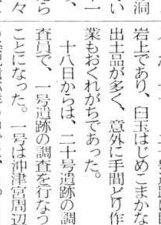 洞
岩上であり、臼玉はじめこまかな
い
出土品が多く、意外に手間どり作
業もおくれがちであった。
十八日からは、二十号遺跡の調
査員で、一号遺跡の調査を行なう
ことになった。一号は沖津宮周辺
々